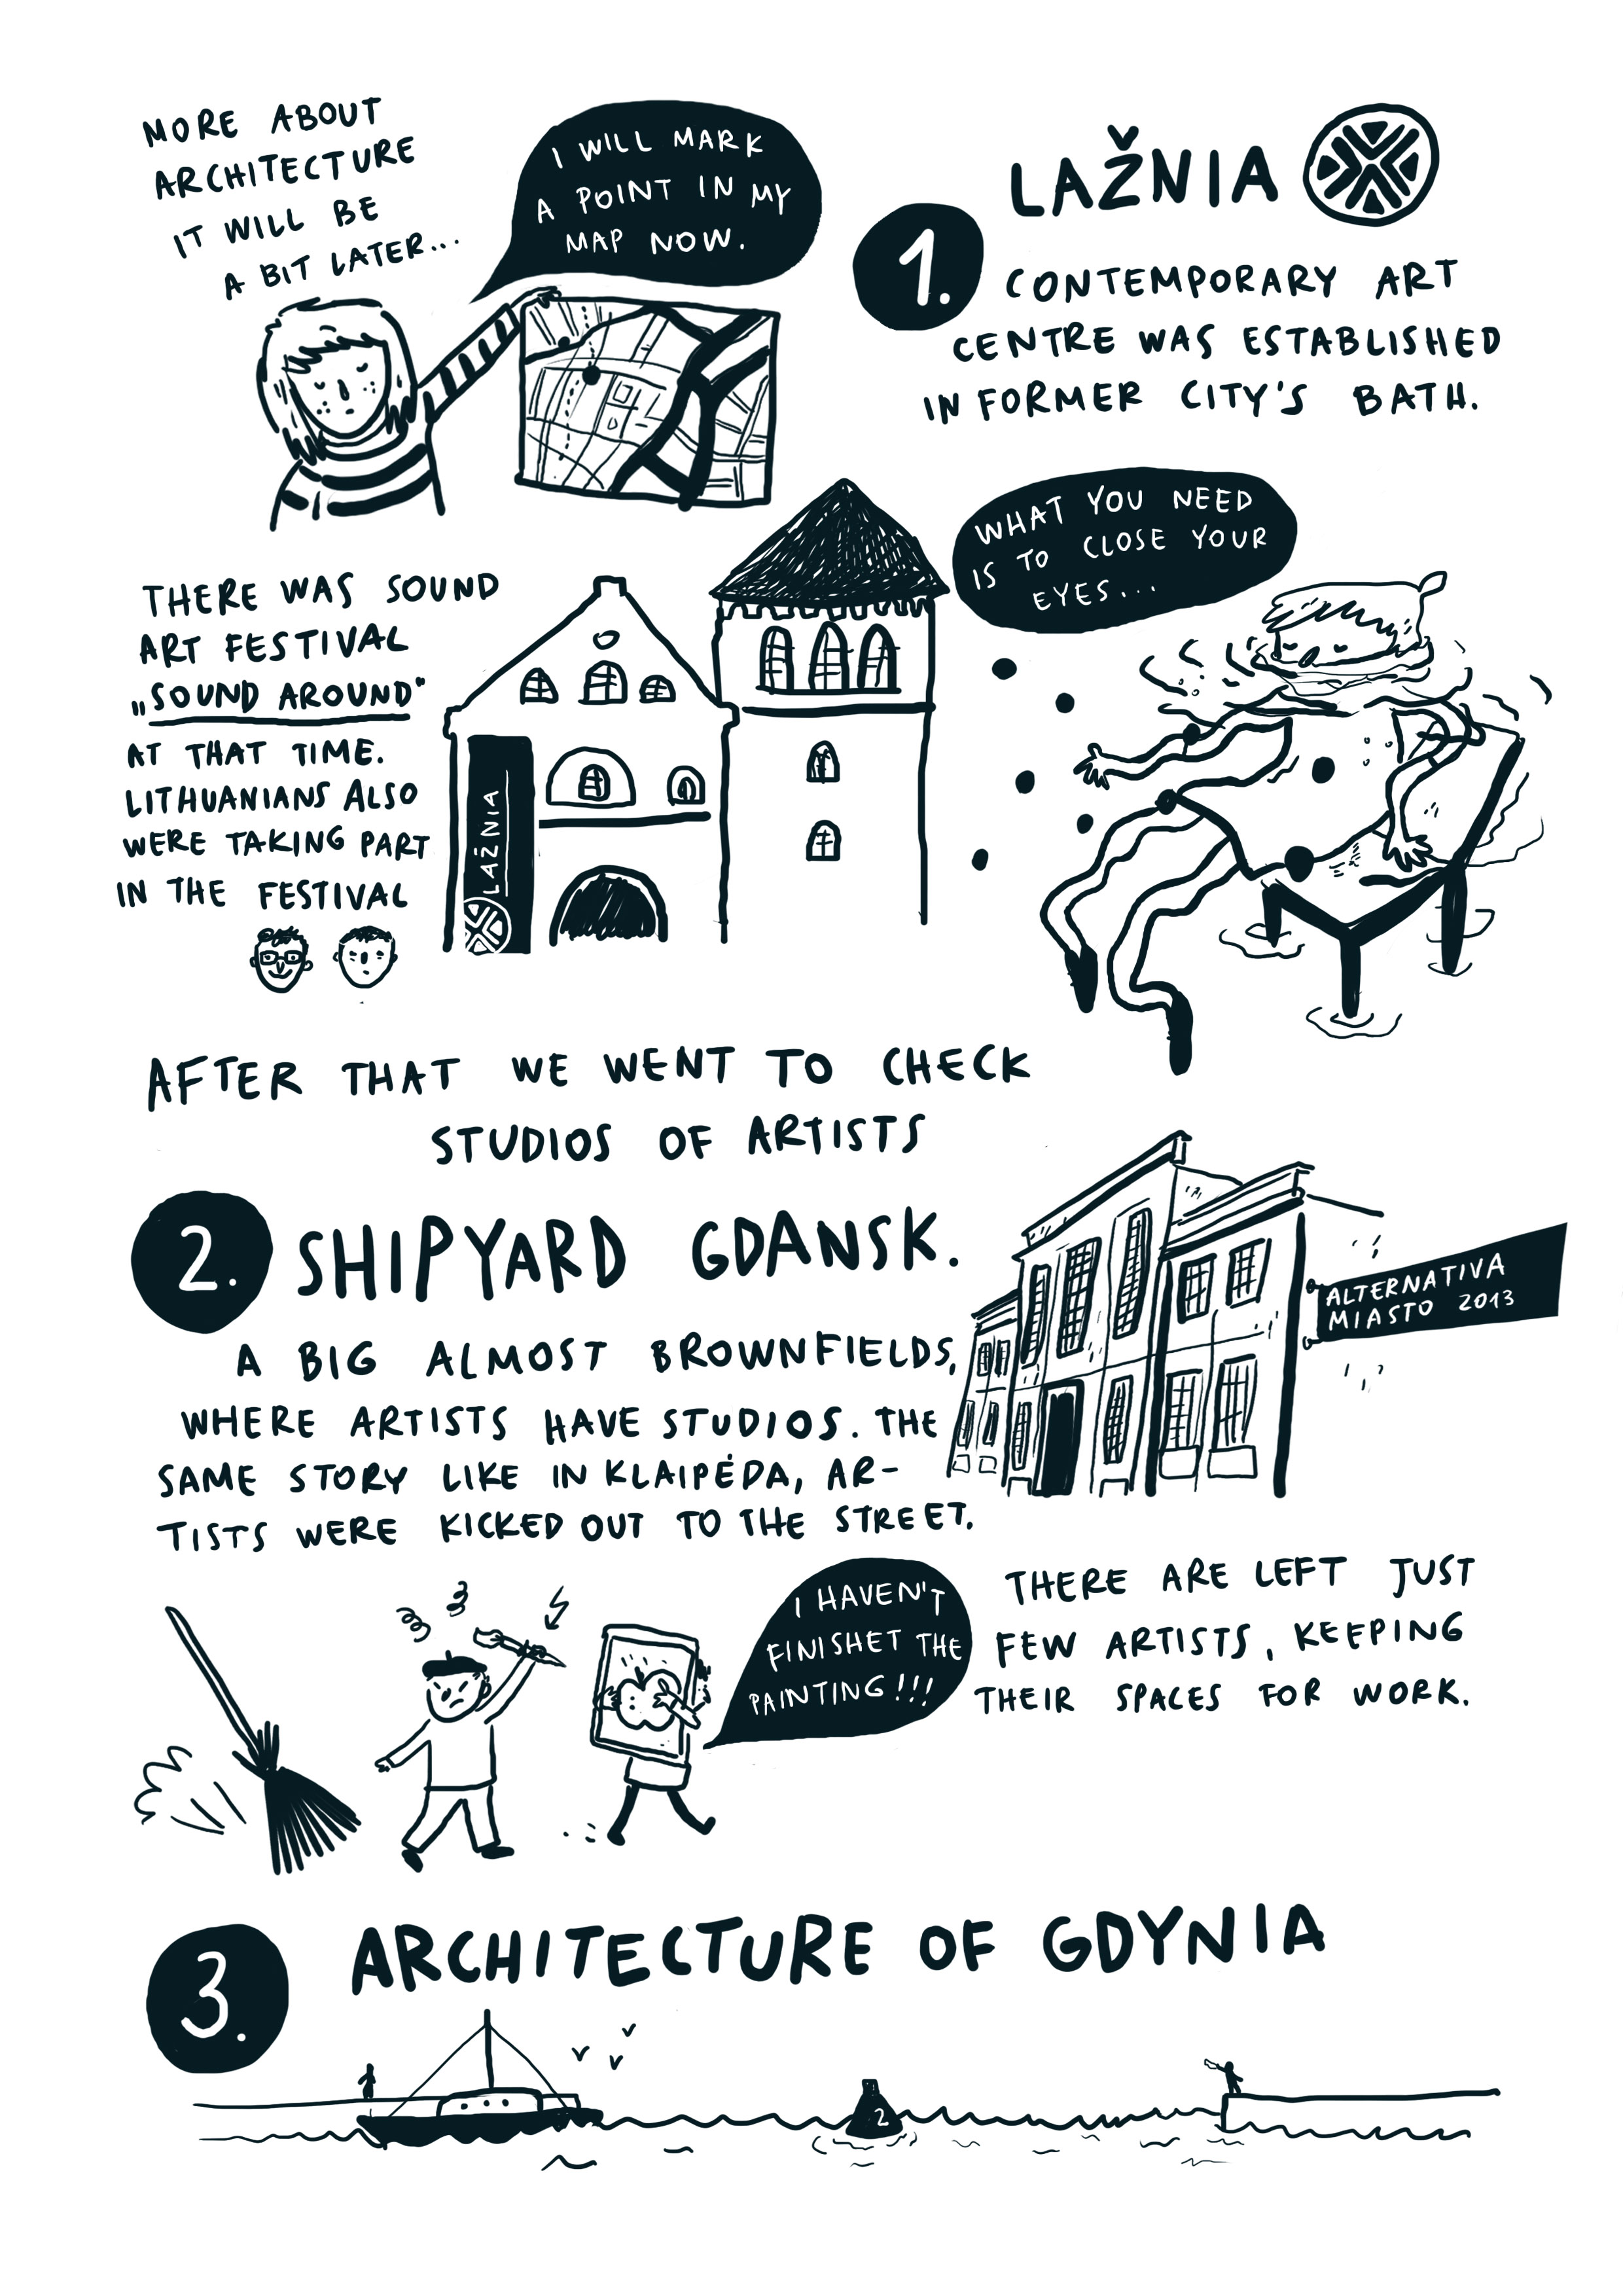 MORE ABOUT
ARCHITECTURE
IT WILL BE
A BIT LATER...
I WILL MARK
A POINT IN MY
MAP NOW.
LAŽNIA
1.
CONTEMPORARY ART
CENTRE WAS ESTABLISHED
IN FORMER CITY'S BATH.
THERE WAS SOUND
ART FESTIVAL
„SOUND AROUND"
AT THAT TIME.
LITHUANIANS ALSO
WERE TAKING PART
IN THE FESTIVAL
LAŽNIA
WHAT YOU NEED
IS TO CLOSE YOUR
EYES...
AFTER THAT WE WENT TO CHECK
STUDIOS OF ARTISTS
2. SHIPYARD GDANSK.
A BIG ALMOST BROWNFIELDS,
WHERE ARTISTS HAVE STUDIOS. THE
SAME STORY LIKE IN KLAIPĖDA, AR-
TISTS WERE KICKED OUT TO THE STREET.
ALTERNATIVA
MIASTO 2013
I HAVEN'T
FINISHET THE
PAINTING!!!
THERE ARE LEFT JUST
FEW ARTISTS, KEEPING
THEIR SPACES FOR WORK.
3. ARCHITECTURE OF GDYNIA
2